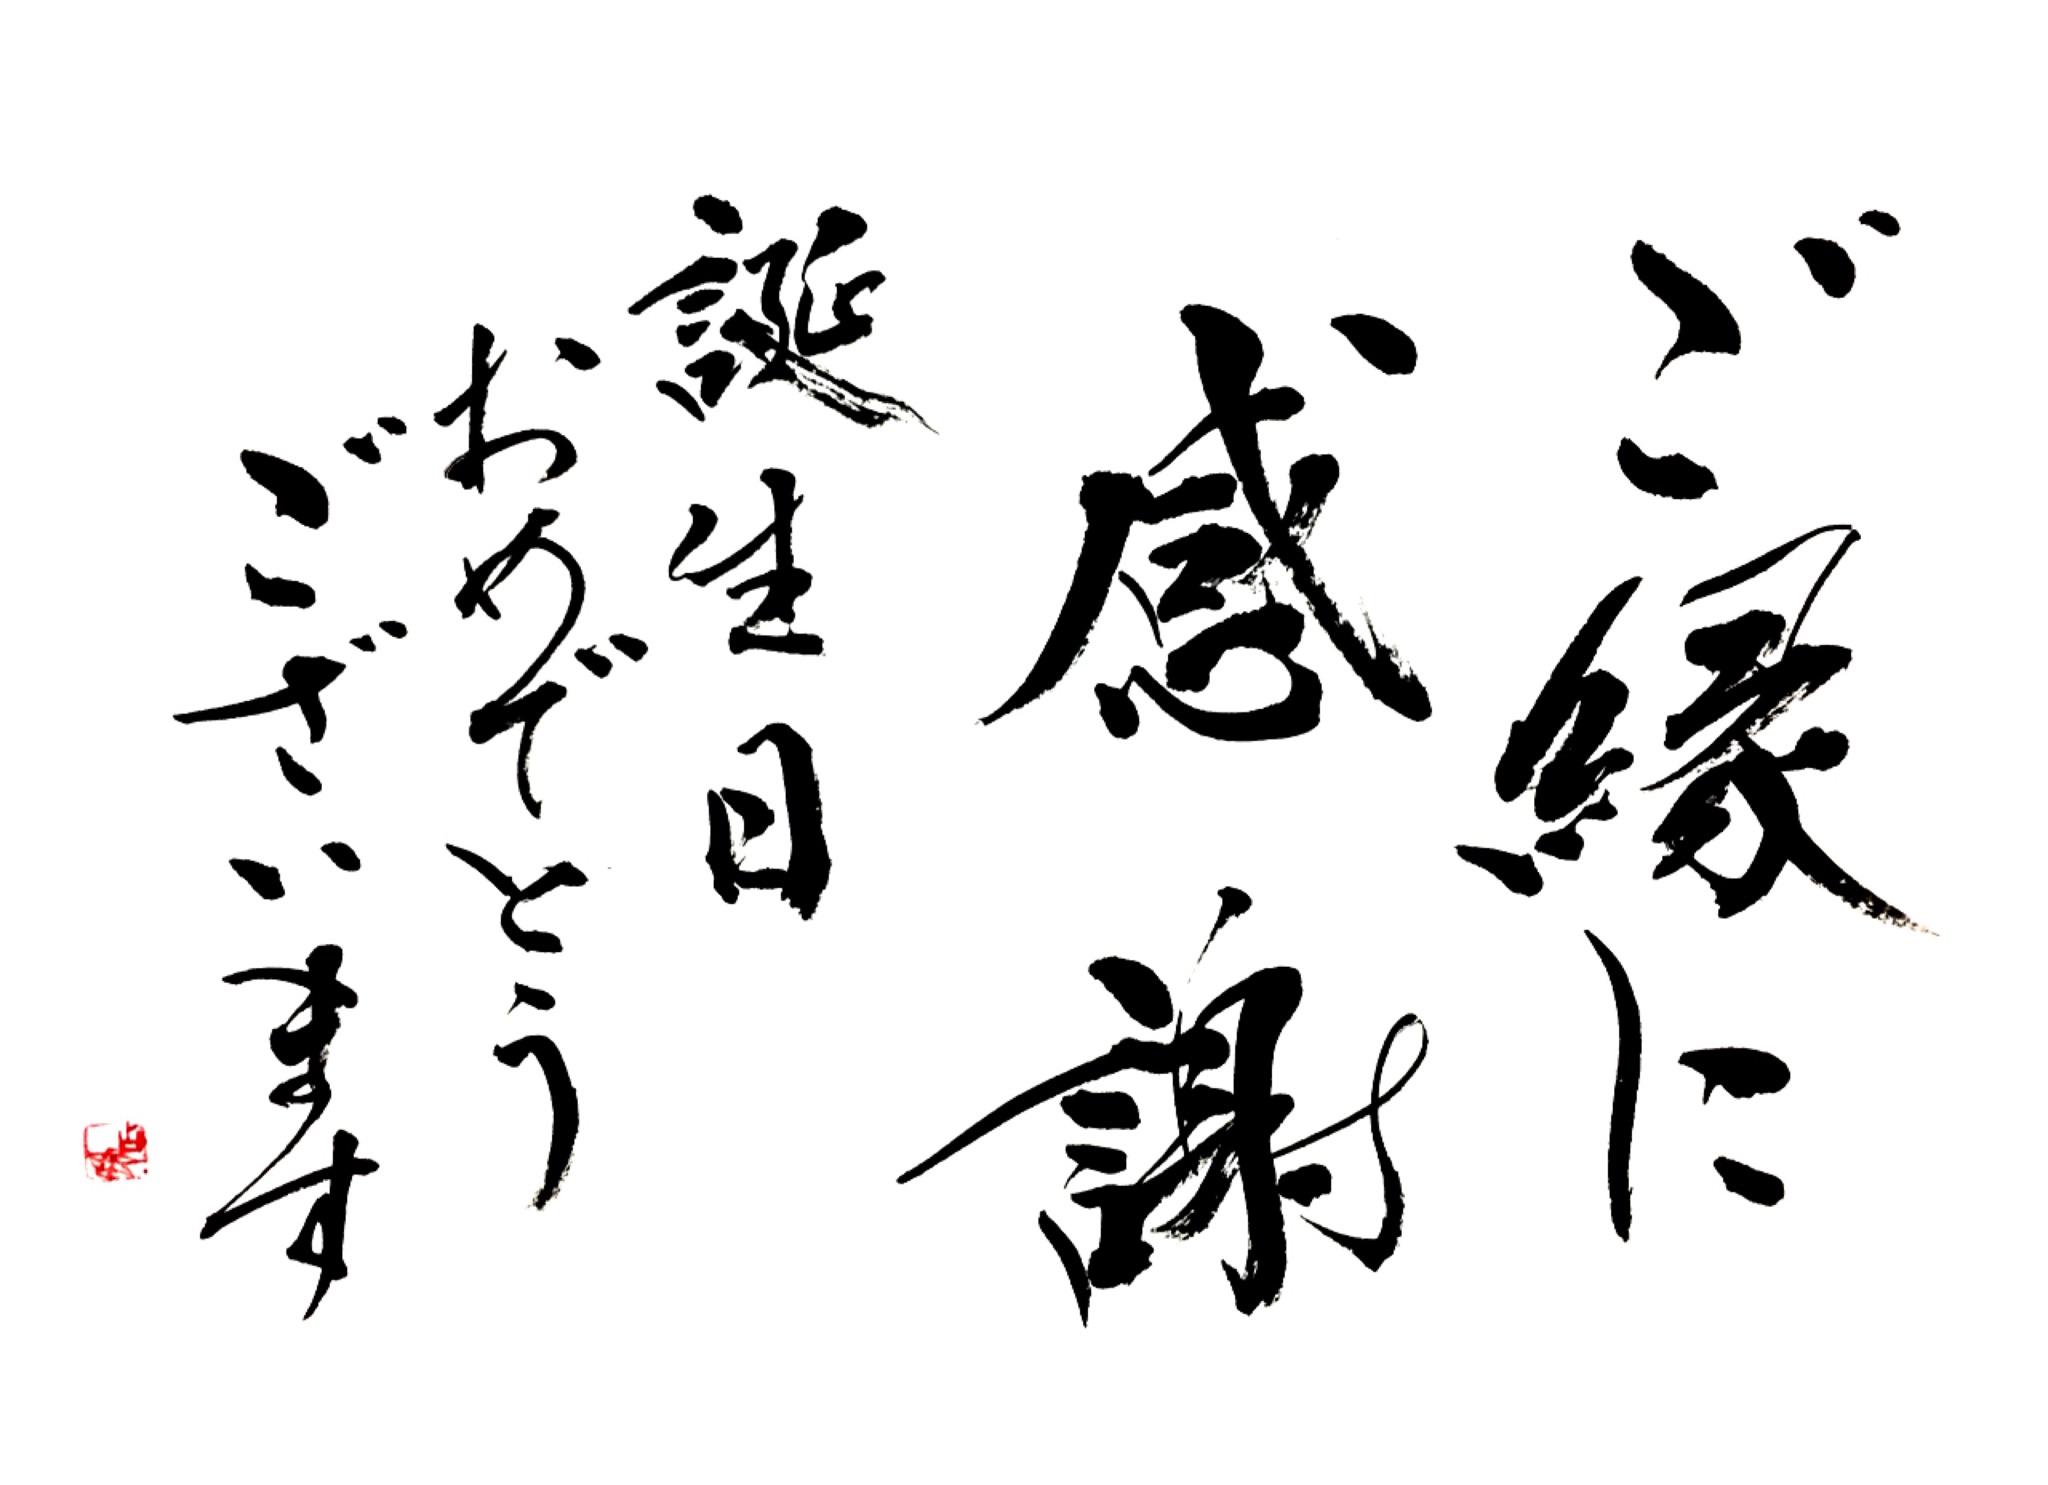 ご縁に
感謝
誕生日
おめでとう
ございます